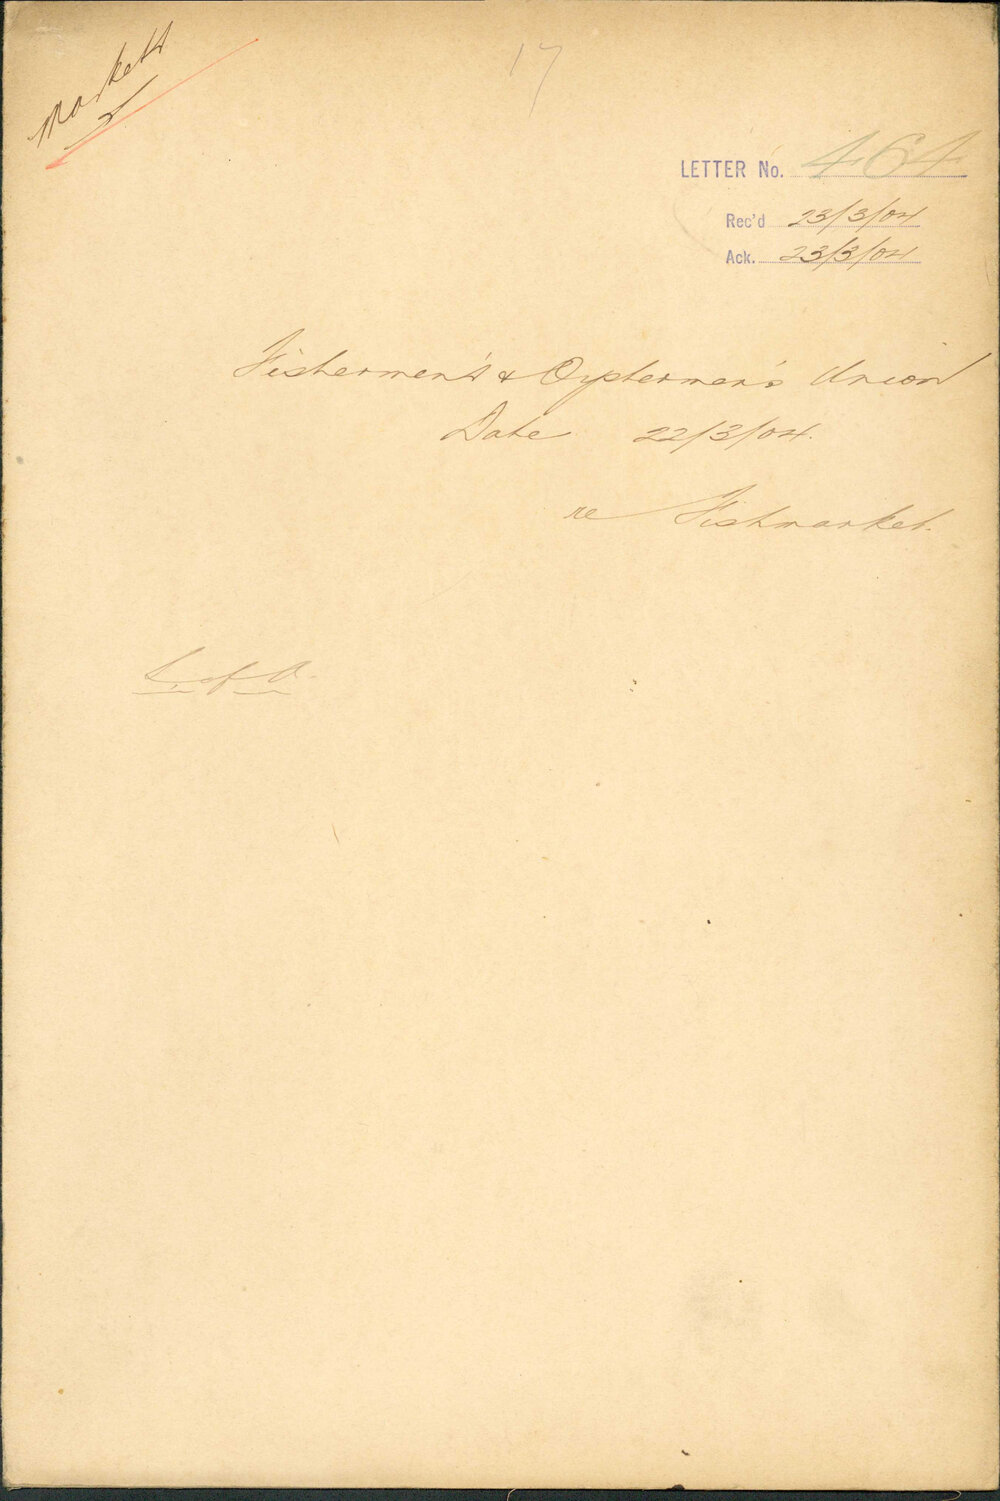 Markets
17
LETTER No. 464
Rec'd 23/3/04
Ack. 23/3/04
Fishermen's & Oystermen's Union
Date 22/3/04.
re Fishmarket.